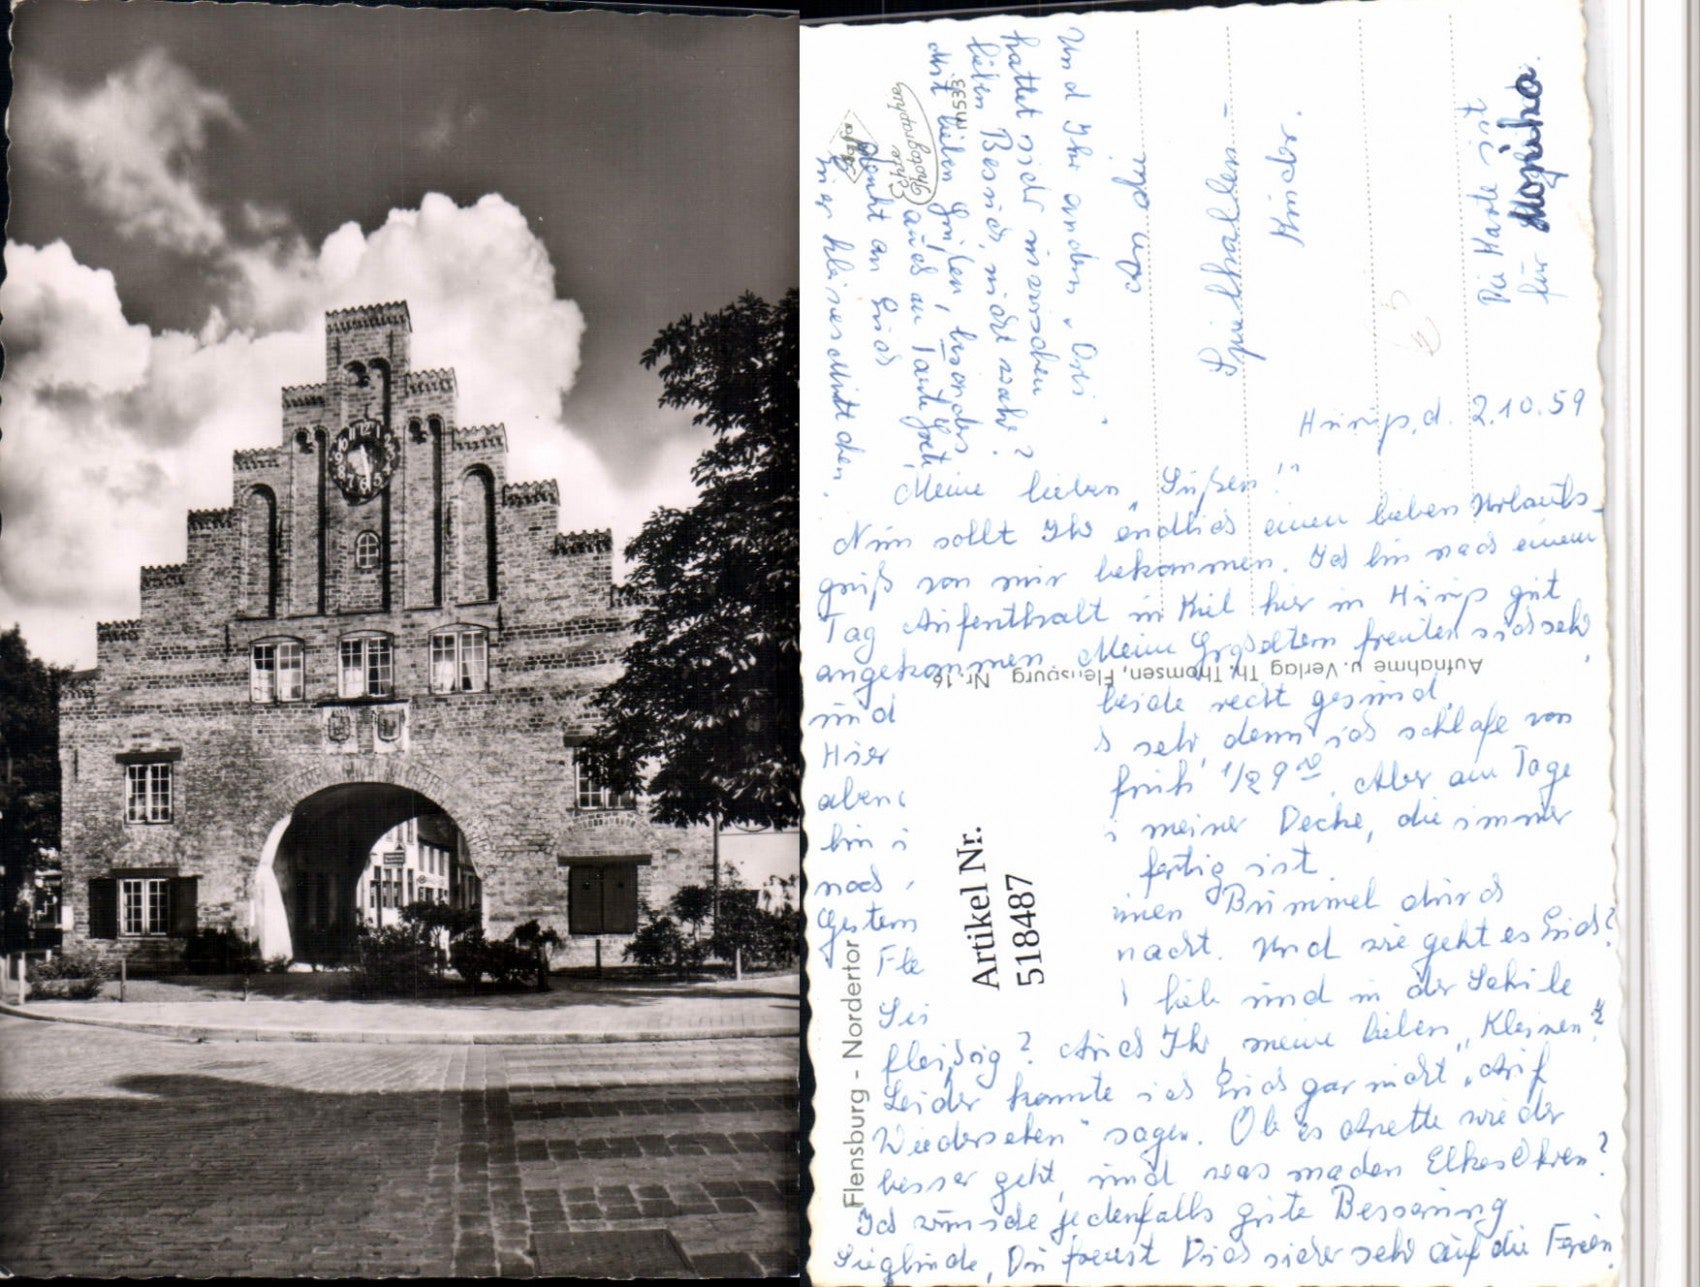 Und Ihr andern
hattet sicher inzwischen
lieben Besuch, nicht wahr?
Mit lieben Grüßen, besonders
auch an Tante Grete,
denkt an Euch
Euer kleines Mittchen.
Agfa
Echte
Photographie
m533
An die
Spielhallen-
Kinder.
Die Karte ist
für Monika.
Hürup, d. 2.10.59
Meine lieben „Süßen"!
Nun sollt Ihr endlich einen lieben Urlaubs-
gruß von mir bekommen. Ich bin nach einem
Tag Aufenthalt in Kiel hier in Hürup gut
angekommen. Meine Großeltern freuten sich sehr,
und beide recht gesund.
Hier sehr, denn ich schlafe von
abend früh 1/2 9 00. Aber am Tage
bin i meiner Decke, die immer
noch fertig ist.
Gestern inen Bummel durch
Fle macht. Und wie geht es Euch?
Sei lieb und in der Schule
fleißig? Auch Ihr, meine lieben „Kleinen"?
Leider konnte ich Euch gar nicht „Auf
Wiedersehen" sagen. Ob es Anette wieder
besser geht, und was machen Elkes Ohren?
Ich wünsche jedenfalls gute Besserung
Sieglinde, Du freust Dich sicher sehr auf die Ferien.
Aufnahme u. Verlag Th. Thomsen, Flensburg Nr. 16
Flensburg - Nordertor
Artikel Nr.
518487